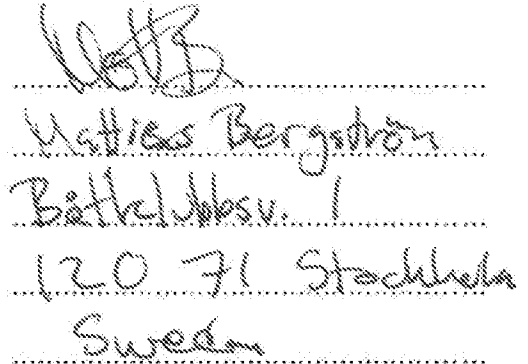 Mattias Bergström
Båtklubbsv. 1
120 71 Stockholm
Sweden